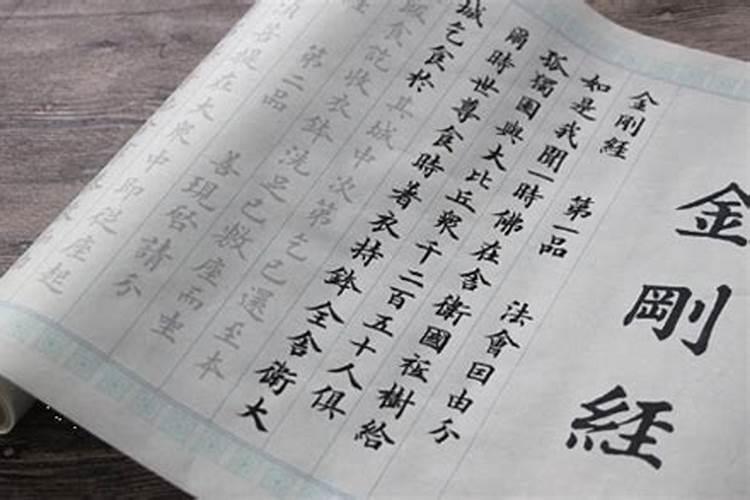 金剛經
金剛經 第一品 法會因由分
如是我聞一時佛在舍衛國祇樹給
孤獨園與大比丘衆千二百五十人俱
爾時世尊食時着衣持鉢全舍衛大
城乞食於其城中次第乞已還至本
飯食訖收衣鉢洗足已敷座而坐
第二品 善現啓請分
菩提在大衆中即從座起